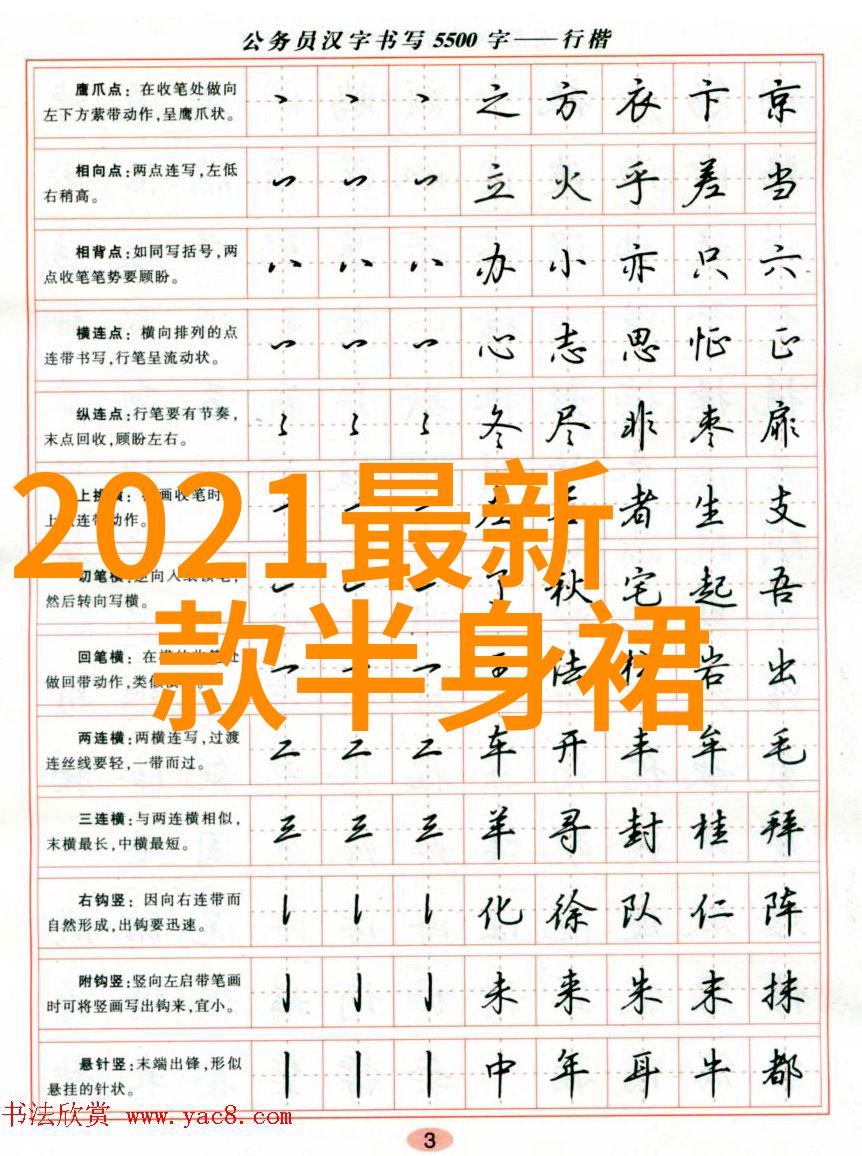 公务员汉字书写5500字——行楷
鹰爪点：在收笔处做向
左下方萦带动作，呈鹰爪状。
之 方 衣 卞 京
相向点：两点连写，左低
右稍高。
立 火 乎 差 当
相背点：如同写括号，两
点收笔笔势要顾盼。
办 小 亦 只 六
横连点：横向排列的点
连带书写，行笔呈流动状。
心 志 思 怔 正
纵连点：行笔要有节奏，
末点回收，顾盼左右。
冬 尽 非 枣 扉
上挑横：画收笔时
上连带动作。
者 生 支
2021最新
切笔横：
然后转向写横。
了 秋 宅 起 吾
款半身裙
回笔横：在
做回带动作，类似
岩 出
两连横：两横连写，过渡
连丝线要轻，一带而过。
二 二 二 车 开 丰 牟 毛
三连横：与两连横相似，
末横最长，中横最短。
三 三 三 羊 寻 封 桂 拜
右钩竖：因向右连带而
自然形成，出钩要迅速。
化 徐 队 仁 阵
附钩竖：竖向左启带笔画
时可将竖画写出钩来，宜小。
未 来 朱 末 抹
悬针竖：末端出锋，形似
悬挂的针状。
中 年 耳 牛 都
书法欣赏 www.yac8.com
3